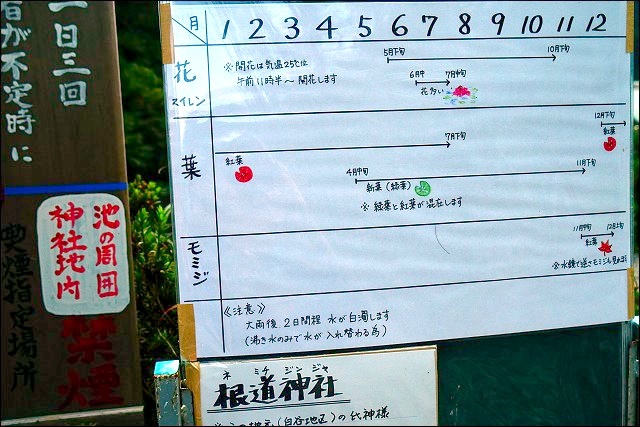 一日三回
者が不定時に
池の周囲
神社地内
禁煙
喫煙指定場所
月 1 2 3 4 5 6 7 8 9 10 11 12
花
スイレン
※ 開花は気温25℃位
午前11時半〜開花します
5月下旬 10月下旬
6月中 7月中旬
花多い
葉
7月下旬
12月下旬
紅葉
紅葉
4月中旬 11月下旬
新葉(緑葉)
※ 緑葉と紅葉が混在します
モミジ
11月中旬 12月上旬
紅葉
《注意》
大雨後 2日間程 水が白濁します
(湧き水のみで水が入れ替わる為)
ネ ミチ ジン ジャ
根道神社
(白谷地区)の氏神様